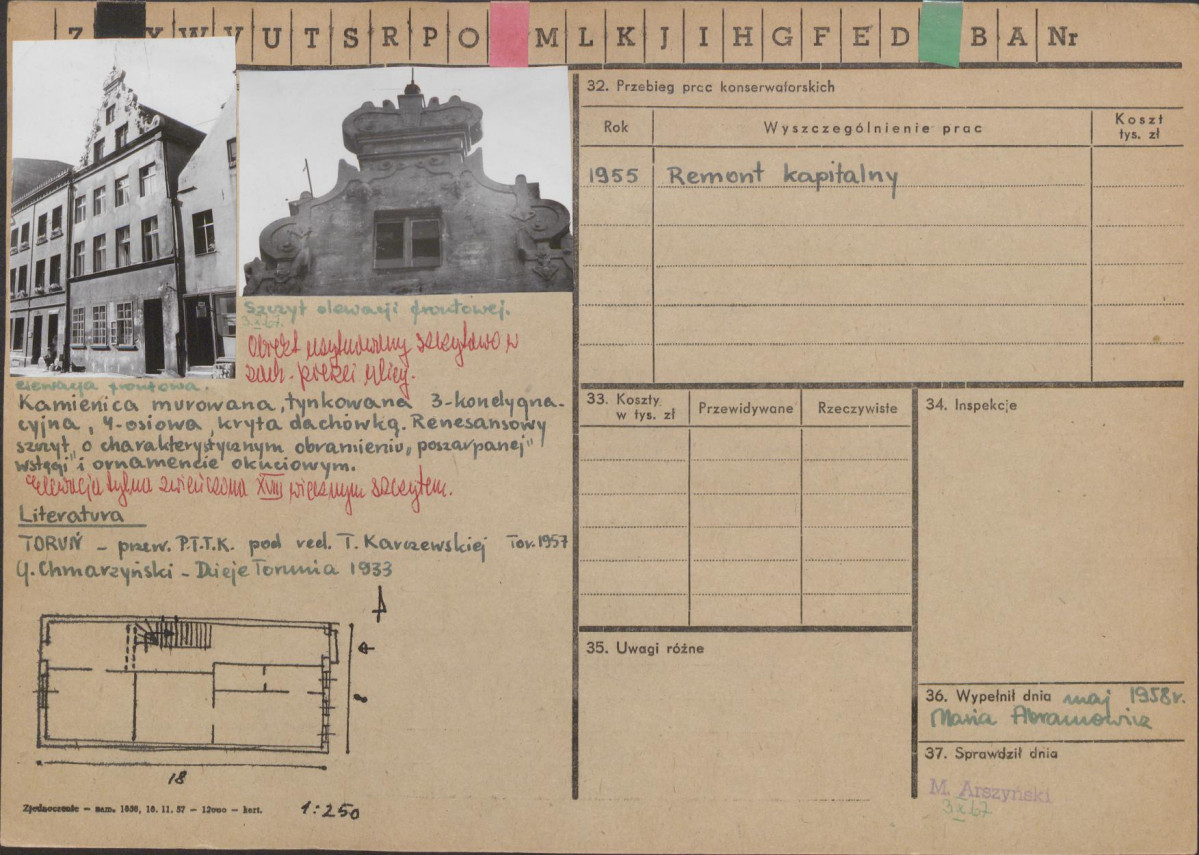 Z Y W V U T S R P O M L K J I H G F E D B A Nr
Szczyt elewacji frontowej.
3.X.67.
Obiekt usytuowany szczytowo w
zach. pierzei ulicy.
elewacja frontowa.
Kamienica murowana, tynkowana 3-kondygna-
cyjna, 4-osiowa, kryta dachówką. Renesansowy
szczyt, o charakterystycznym obramieniu „poszarpanej
wstęgi” i ornamencie okuciowym.
Elewacja tylna zwieńczona XVIII wiecznym szczytem.
Literatura
TORUŃ – przew. P.T.T.K. pod red. T. Karczewskiej Tor. 1957
G. Chmarzyński – Dzieje Torunia 1933
18
1:250
Zjednoczenie — zam. 1656, 16. 11. 57 — 12000 — kart.
32. Przebieg prac konserwatorskich
Rok Wyszczególnienie prac Koszt
tys. zł
1955 Remont kapitalny
33. Koszty
w tys. zł Przewidywane Rzeczywiste
34. Inspekcje
35. Uwagi różne
36. Wypełnił dnia maj 1958r.
Maria Abramowicz
37. Sprawdził dnia
M. Arszyński
3.X.67